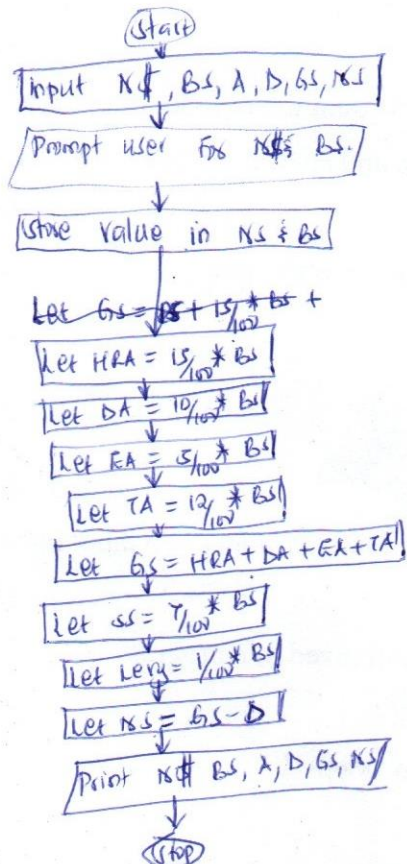 Start
input N$, BS, A, D, GS, NS
Prompt user for N$ & BS.
Store value in NS & BS
Let GS = BS + 15/100 * BS +
Let HRA = 15/100 * BS
Let DA = 10/100 * BS
Let EA = 5/100 * BS
Let TA = 12/100 * BS
Let GS = HRA + DA + EA + TA
Let SS = 7/100 * BS
Let Levy = 1/100 * BS
Let NS = GS - D
Print N$ BS, A, D, GS, NS
Stop